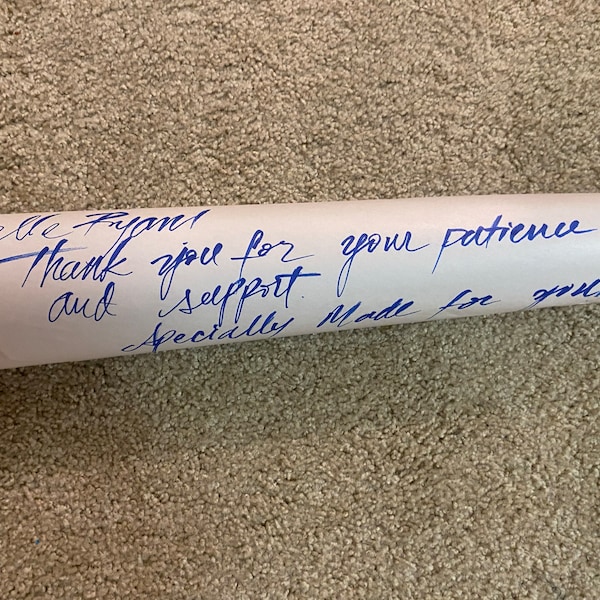 elle Ryan
Thank you for your patience
and support.
Specially Made for you